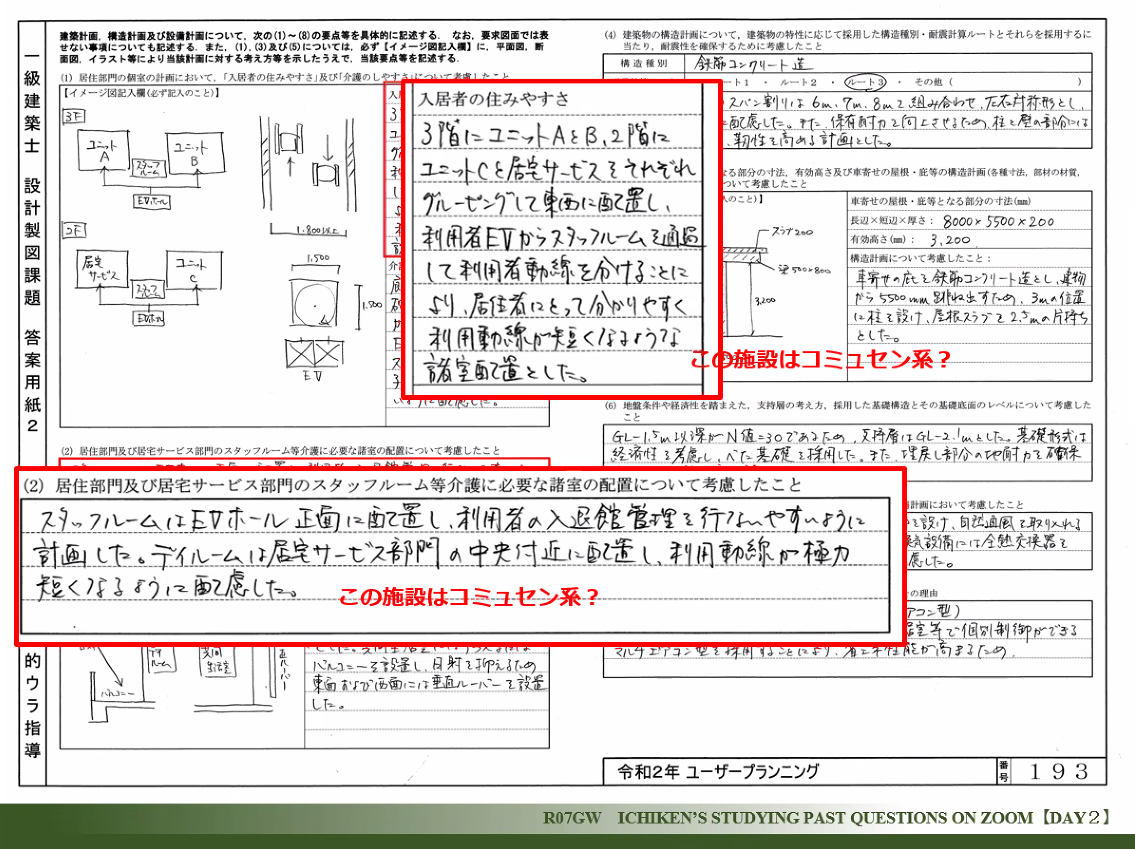 一級建築士 設計製図課題 答案用紙2
的ウラ指導
建築計画、構造計画及び設備計画について、次の(1)～(8)の要点等を具体的に記述する。なお、要求図面では表
せない事項についても記述する。また、(1)、(3)及び(5)については、必ず【イメージ図記入欄】に、平面図、断
面図、イラスト等により当該計画に対する考え方等を示したうえで、当該要点等を記述する。
(1) 居住部門の個室の計画において、「入居者の住みやすさ」及び「介護のしやすさ」について考慮したこと
【イメージ図記入欄(必ず記入のこと)】
3F
ユニット
A
ユニット
B
スタッフ
ルーム
EVホール
2F
居宅
サービス
ユニット
C
スタッフ
ルーム
EVホール
1,800以上
1,500
1,500
EV
入居者の住みやすさ
3階にユニットAとB、2階に
ユニットCと居宅サービスをそれぞれ
グルーピングして東西に配置し、
利用者EVからスタッフルームを通過
して利用者動線を分けることに
より、居住者にとって分かりやすく
利用動線が短くなるような
諸室配置とした。
この施設はコミュセン系？
(2) 居住部門及び居宅サービス部門のスタッフルーム等介護に必要な諸室の配置について考慮したこと
(2) 居住部門及び居宅サービス部門のスタッフルーム等介護に必要な諸室の配置について考慮したこと
スタッフルームはEVホール正面に配置し、利用者の入退館管理を行ないやすいように
計画した。デイルームは居宅サービス部門の中央付近に配置し、利用動線が極力
短くなるように配慮した。
この施設はコミュセン系？
バルコニー
バルコニーを設置し、日射を抑えるため
東面および西面には垂直ルーバーを設置
した。
(4) 建築物の構造計画について、建築物の特性に応じて採用した構造種別・耐震計算ルートとそれらを採用するに
当たり、耐震性を確保するために考慮したこと
構造種別
鉄筋コンクリート造
ート1 ・ ルート2 ・ ルート3 ・ その他( )
スパン割りは6m、7m、8mと組み合わせ、左右対称形とし、
に配慮した。また、保有耐力を向上させるため、柱と壁の部分には
、靭性を高める計画とした。
なる部分の寸法、有効高さ及び車寄せの屋根・庇等の構造計画(各種寸法、部材の材質、
ついて考慮したこと
入のこと)】
スラブ200
梁500×800
3,200
車寄せの屋根・庇等となる部分の寸法(mm)
長辺×短辺×厚さ： 8000×5500×200
有効高さ(mm)： 3,200
構造計画について考慮したこと：
車寄せの庇を鉄筋コンクリート造とし、建物
から5500mm跳ね出すため、3mの位置
に柱を設け、屋根スラブを2.5mの片持ち
とした。
(6) 地盤条件や経済性を踏まえた、支持層の考え方、採用した基礎構造とその基礎底面のレベルについて考慮した
こと
GL-1.5m以深がN値=30であるため、支持層はGL-2.1mとした。基礎形式は
経済性を考慮し、べた基礎を採用した。また、埋戻し部分の地耐力を確保
計画において考慮したこと
を設け、自然通風を取り入れる
気設備には全熱交換器を
慮した。
の理由
アコン型)
居室等で個別制御ができる
マルチエアコン型を採用することにより、省エネ性能が高まるため。
令和2年 ユーザープランニング
番号
193
R07GW ICHIKEN'S STUDYING PAST QUESTIONS ON ZOOM【DAY2】